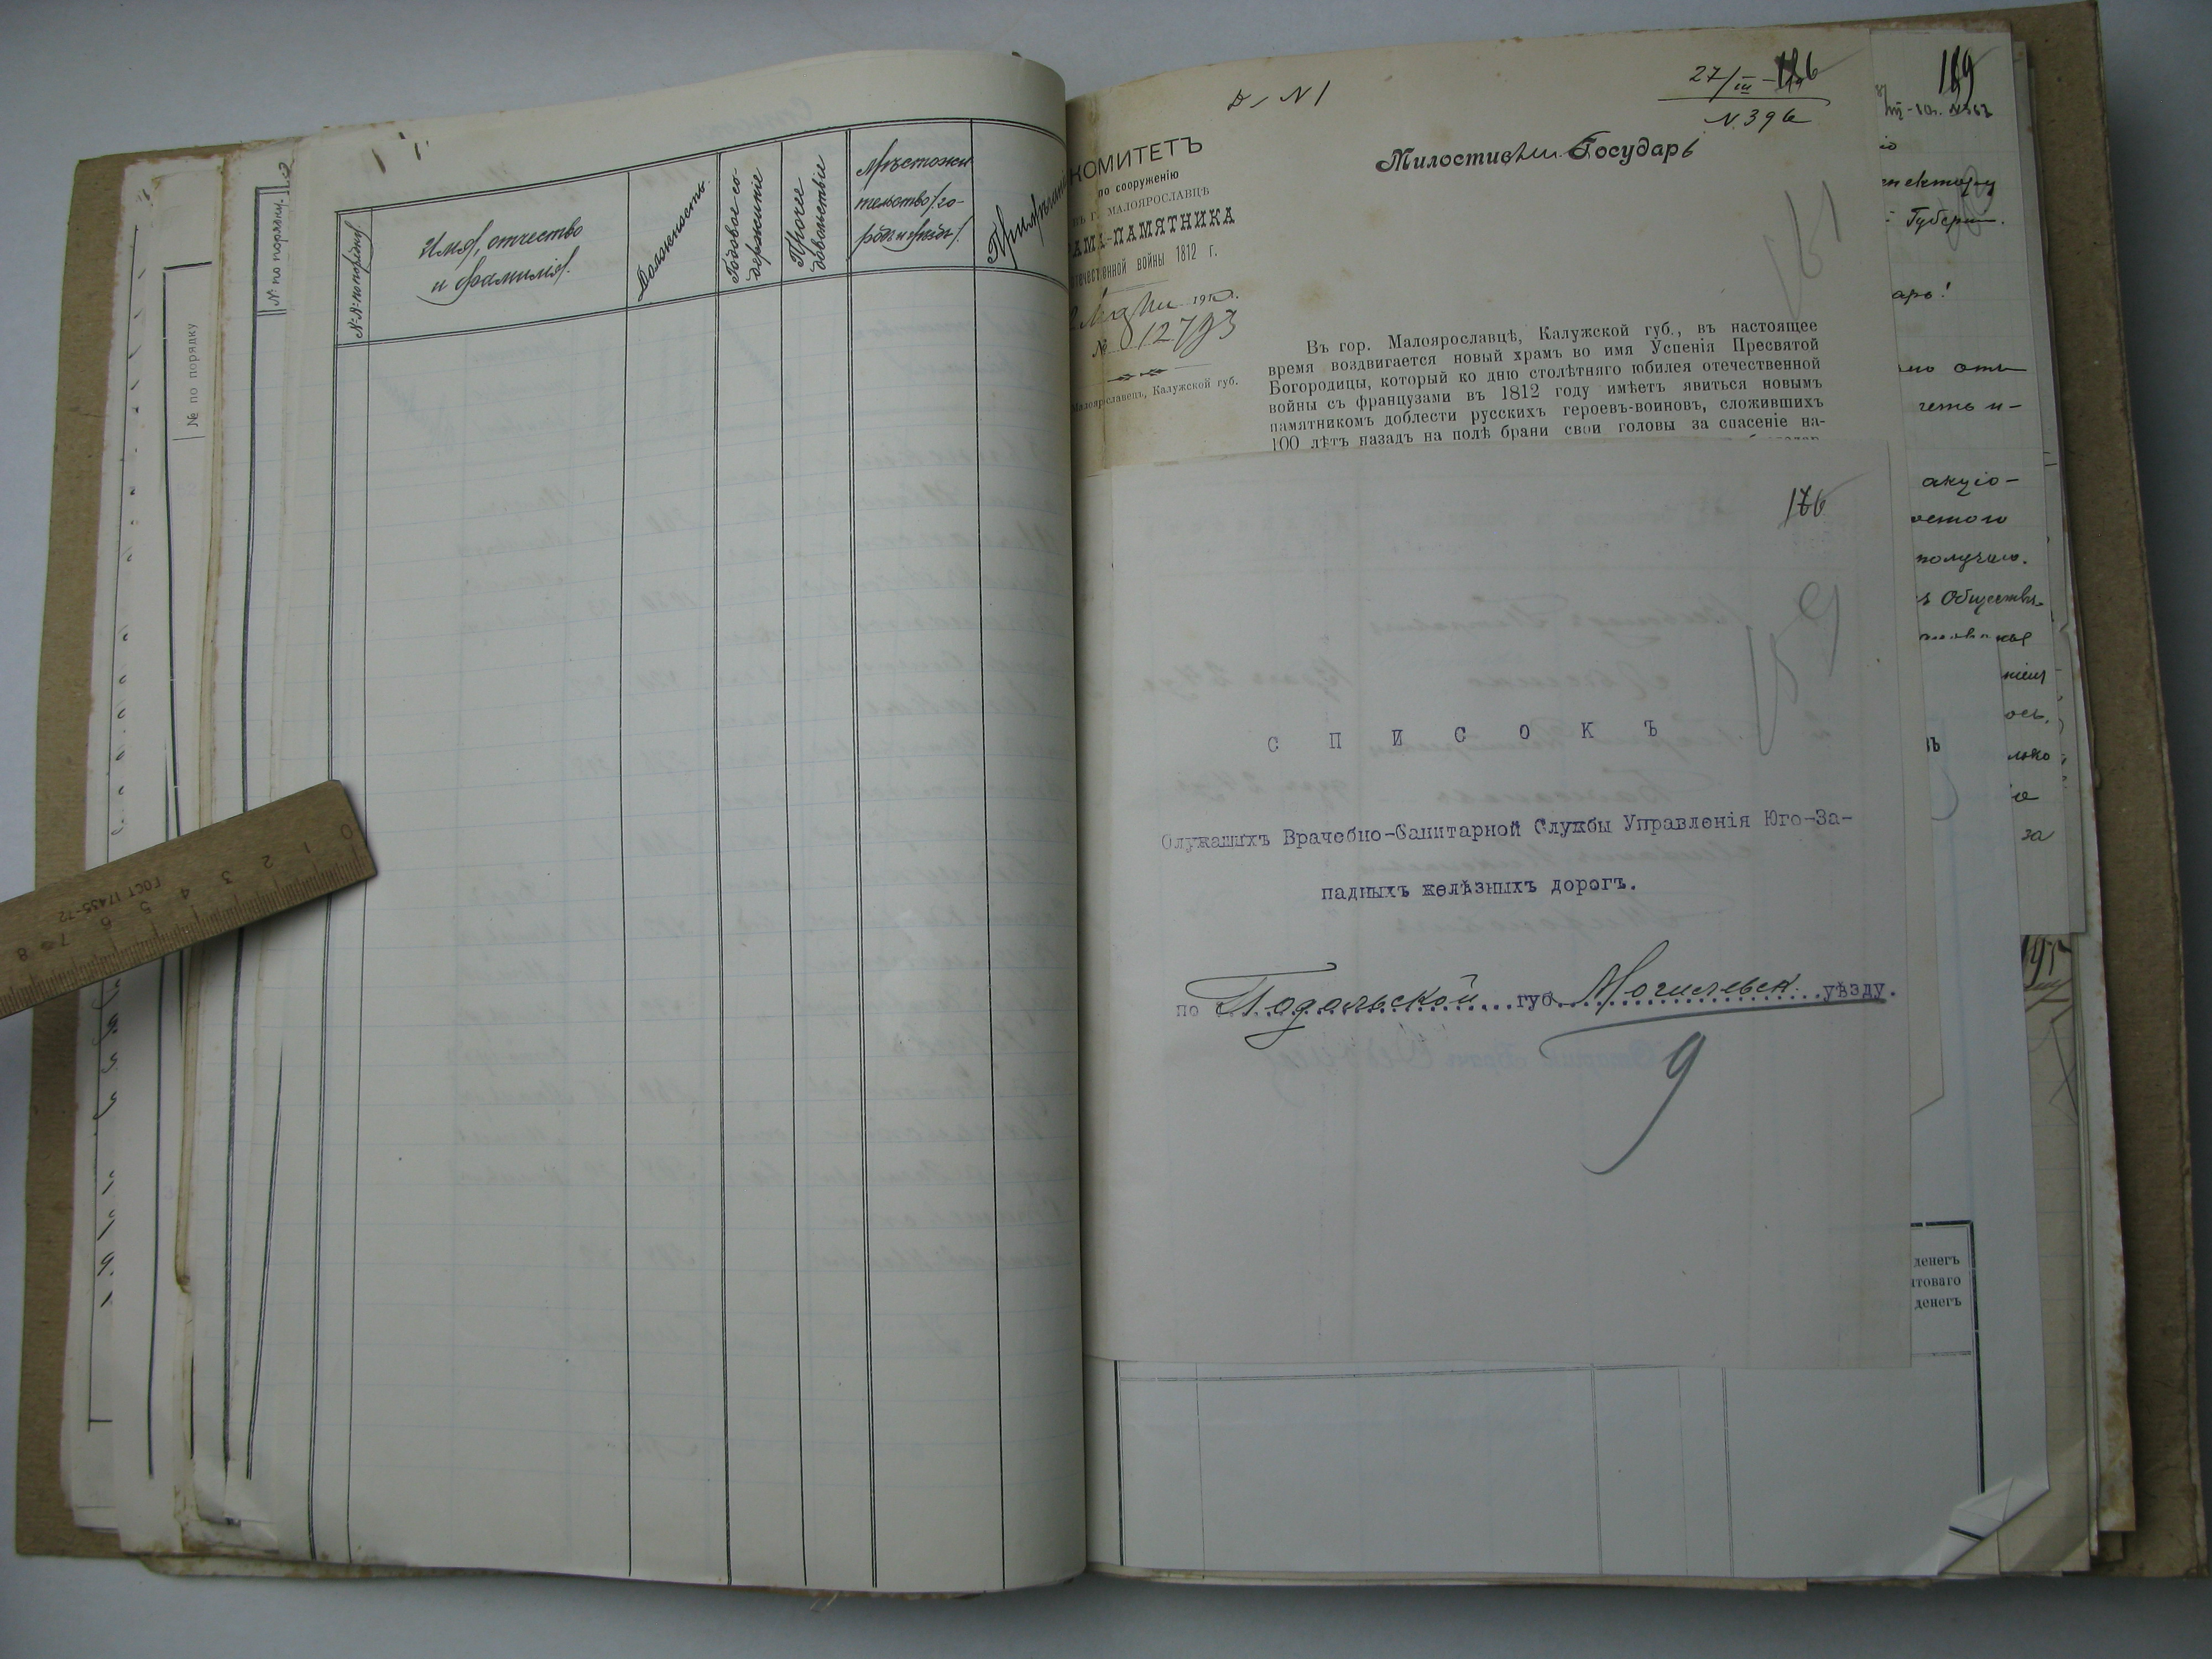 №№ по порядку
Имя, отчество
и фамилія.
Должность.
Годовое со-
держаніе
Прочее
довольствіе
Мѣстожи-
тельство /го-
родъ и уѣздъ/.
Примѣчаніе
№ по порядку
№ по порядку.
ГОСТ 17435-72
0 1 2 3 4 5 6 7 8
Д. N 1
27/III
N. 396
КОМИТЕТЪ
по сооружению
въ г. МАЛОЯРОСЛАВЦѢ
ХРАМА-ПАМЯТНИКА
отечественной войны 1812 г.
№ 12793
Малоярославецъ, Калужской губ.
Милостивый Государь
Въ гор. Малоярославцѣ, Калужской губ., въ настоящее
время воздвигается новый храмъ во имя Успенія Пресвятой
Богородицы, который ко дню столѣтняго юбилея отечественной
войны съ французами въ 1812 году имѣетъ явиться новымъ
памятникомъ доблести русскихъ героевъ-воиновъ, сложившихъ
100 лѣтъ назадъ на полѣ брани свои головы за спасеніе на-
176
159
С П И С О К Ъ
Служащихъ Врачебно-Санитарной Службы Управленія Юго-За-
падныхъ желѣзныхъ дорогъ.
по Подольской губ. Могилевск. уѣзду.
9
189
Губерн.
арь!
акціо-
получило.
Обществ
лько
за
195
денегъ
чтоваго
денегъ